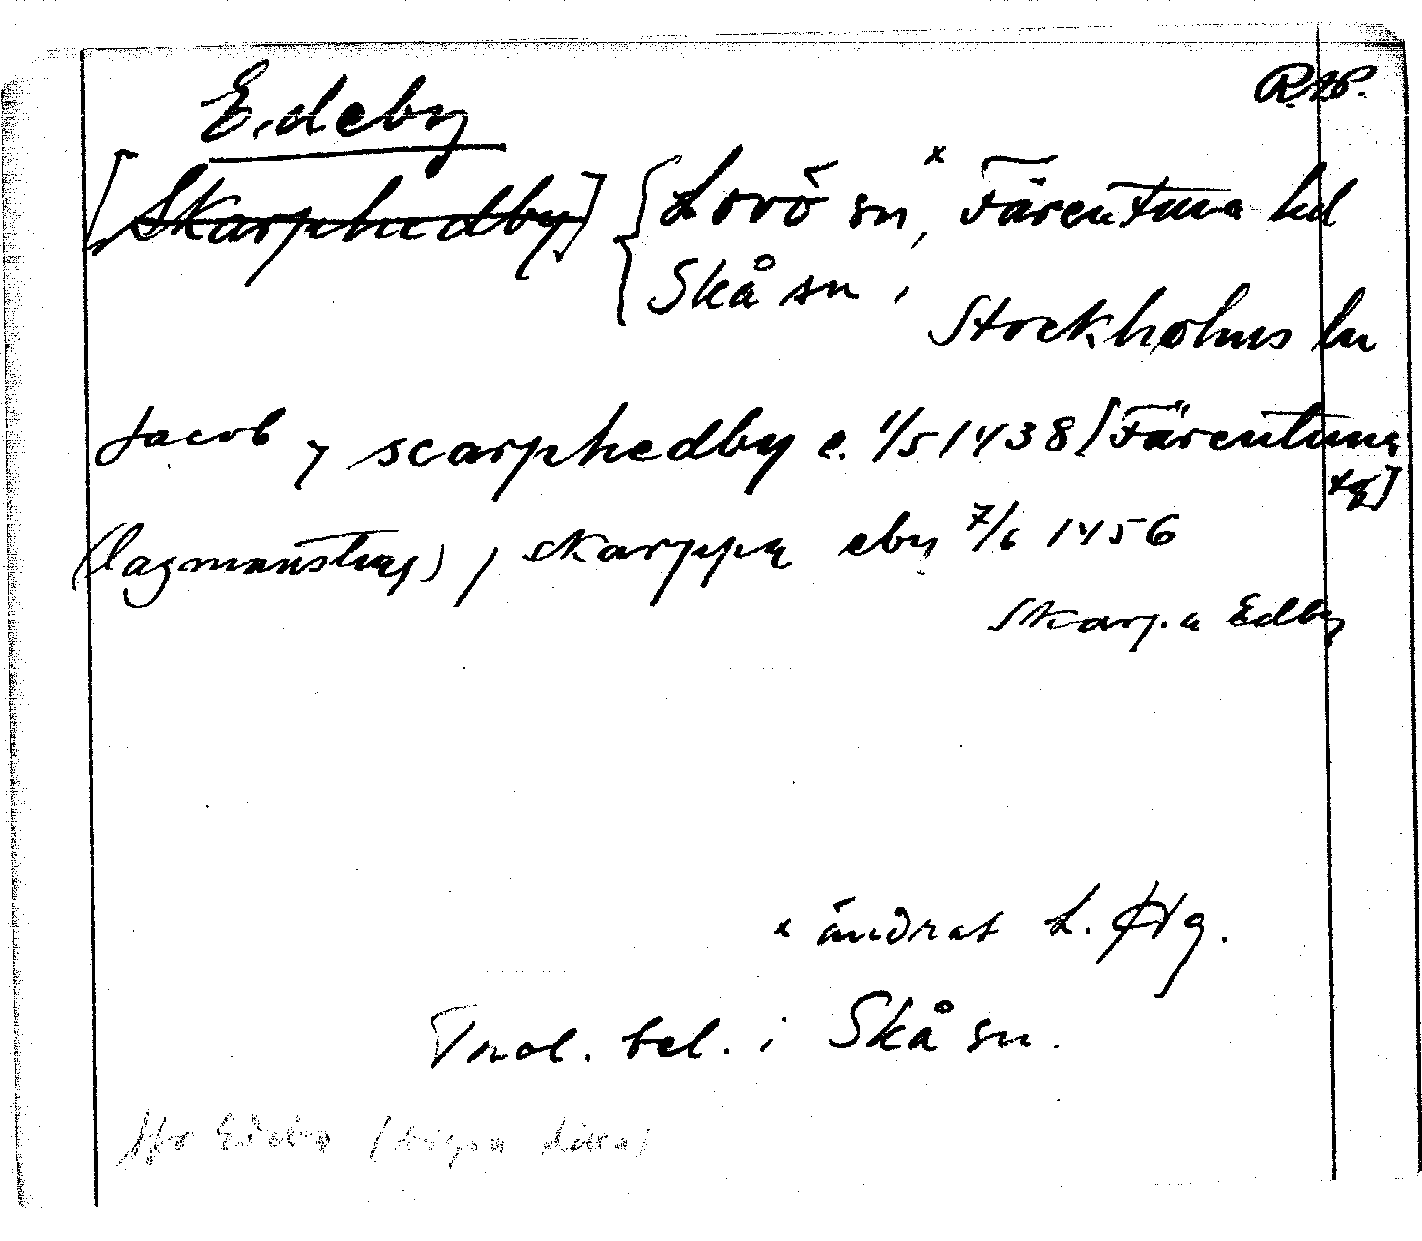 Edeby
[Skarphedby] { Lovö sn,ˣ Färentuna hd
Skå sn,
Stockholms län
Jacob j scarphedby e. 1/5 1438 [Färentuna
tg]
(lagmansting), j skarppa eby 7/6 1456
Skarpa Edby
x ändrat L. Hg.
Trol. bel. i Skå sn.
Edeby